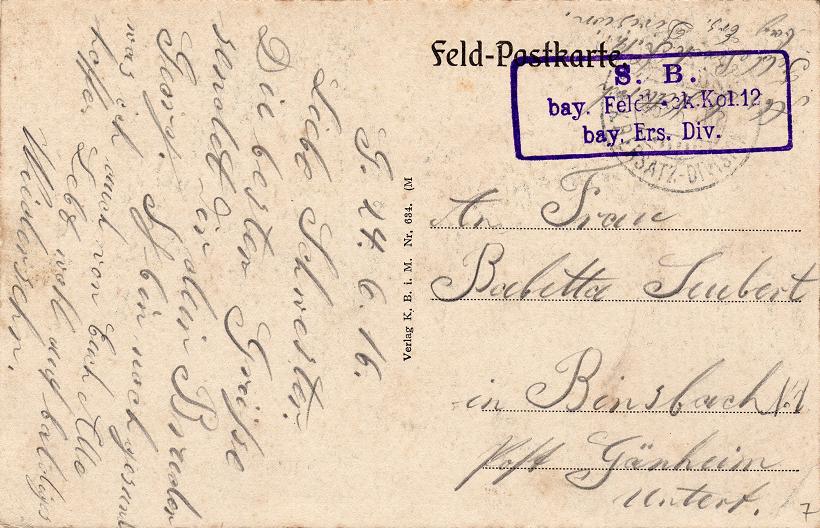 G. 24. 6. 16.
Liebe Schwester.
Die besten Grüsse
sendet Dir dein Bruder
Georg. Ich bin noch gesund
was ich auch von Euch Alle
hoffe. Lebt wohl auf baldiges
Wiedersehn.
Verlag K. B. i. M. Nr. 634. (M
Feld-Postkarte
S. B.
bay. Feld Kol. 12
bay. Ers. Div.
SATZ-DIVIS
bay. Ers. Division.
An Frau
Babetta Seubert
in Binsbach
Post Gänheim
Unterf.
7